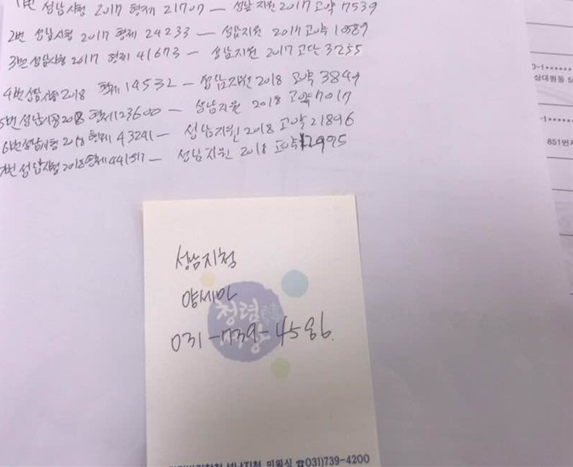 1번 성남지청 2017 형제 21707 – 성남지원 2017 고약 7539
2번 성남지청 2017 형제 24233 – 성남지원 2017 고약 10589
3번 성남지청 2017 형제 41673 – 성남지원 2017 고단 3255
4번 성남지청 2018 형제 14532 – 성남지원 2018 고약 3849
5번 성남지청 2018 형제 23600 – 성남지원 2018 고약 7017
6번 성남지청 2018 형제 43241 – 성남지원 2018 고약 21896
성남지청 2018 형제 – 성남지원 2018 고약 12995
상대원동
851번지
성남지청
양세만
031-739-4586.
청렴
성남지청 민원실 ☎031)739-4200